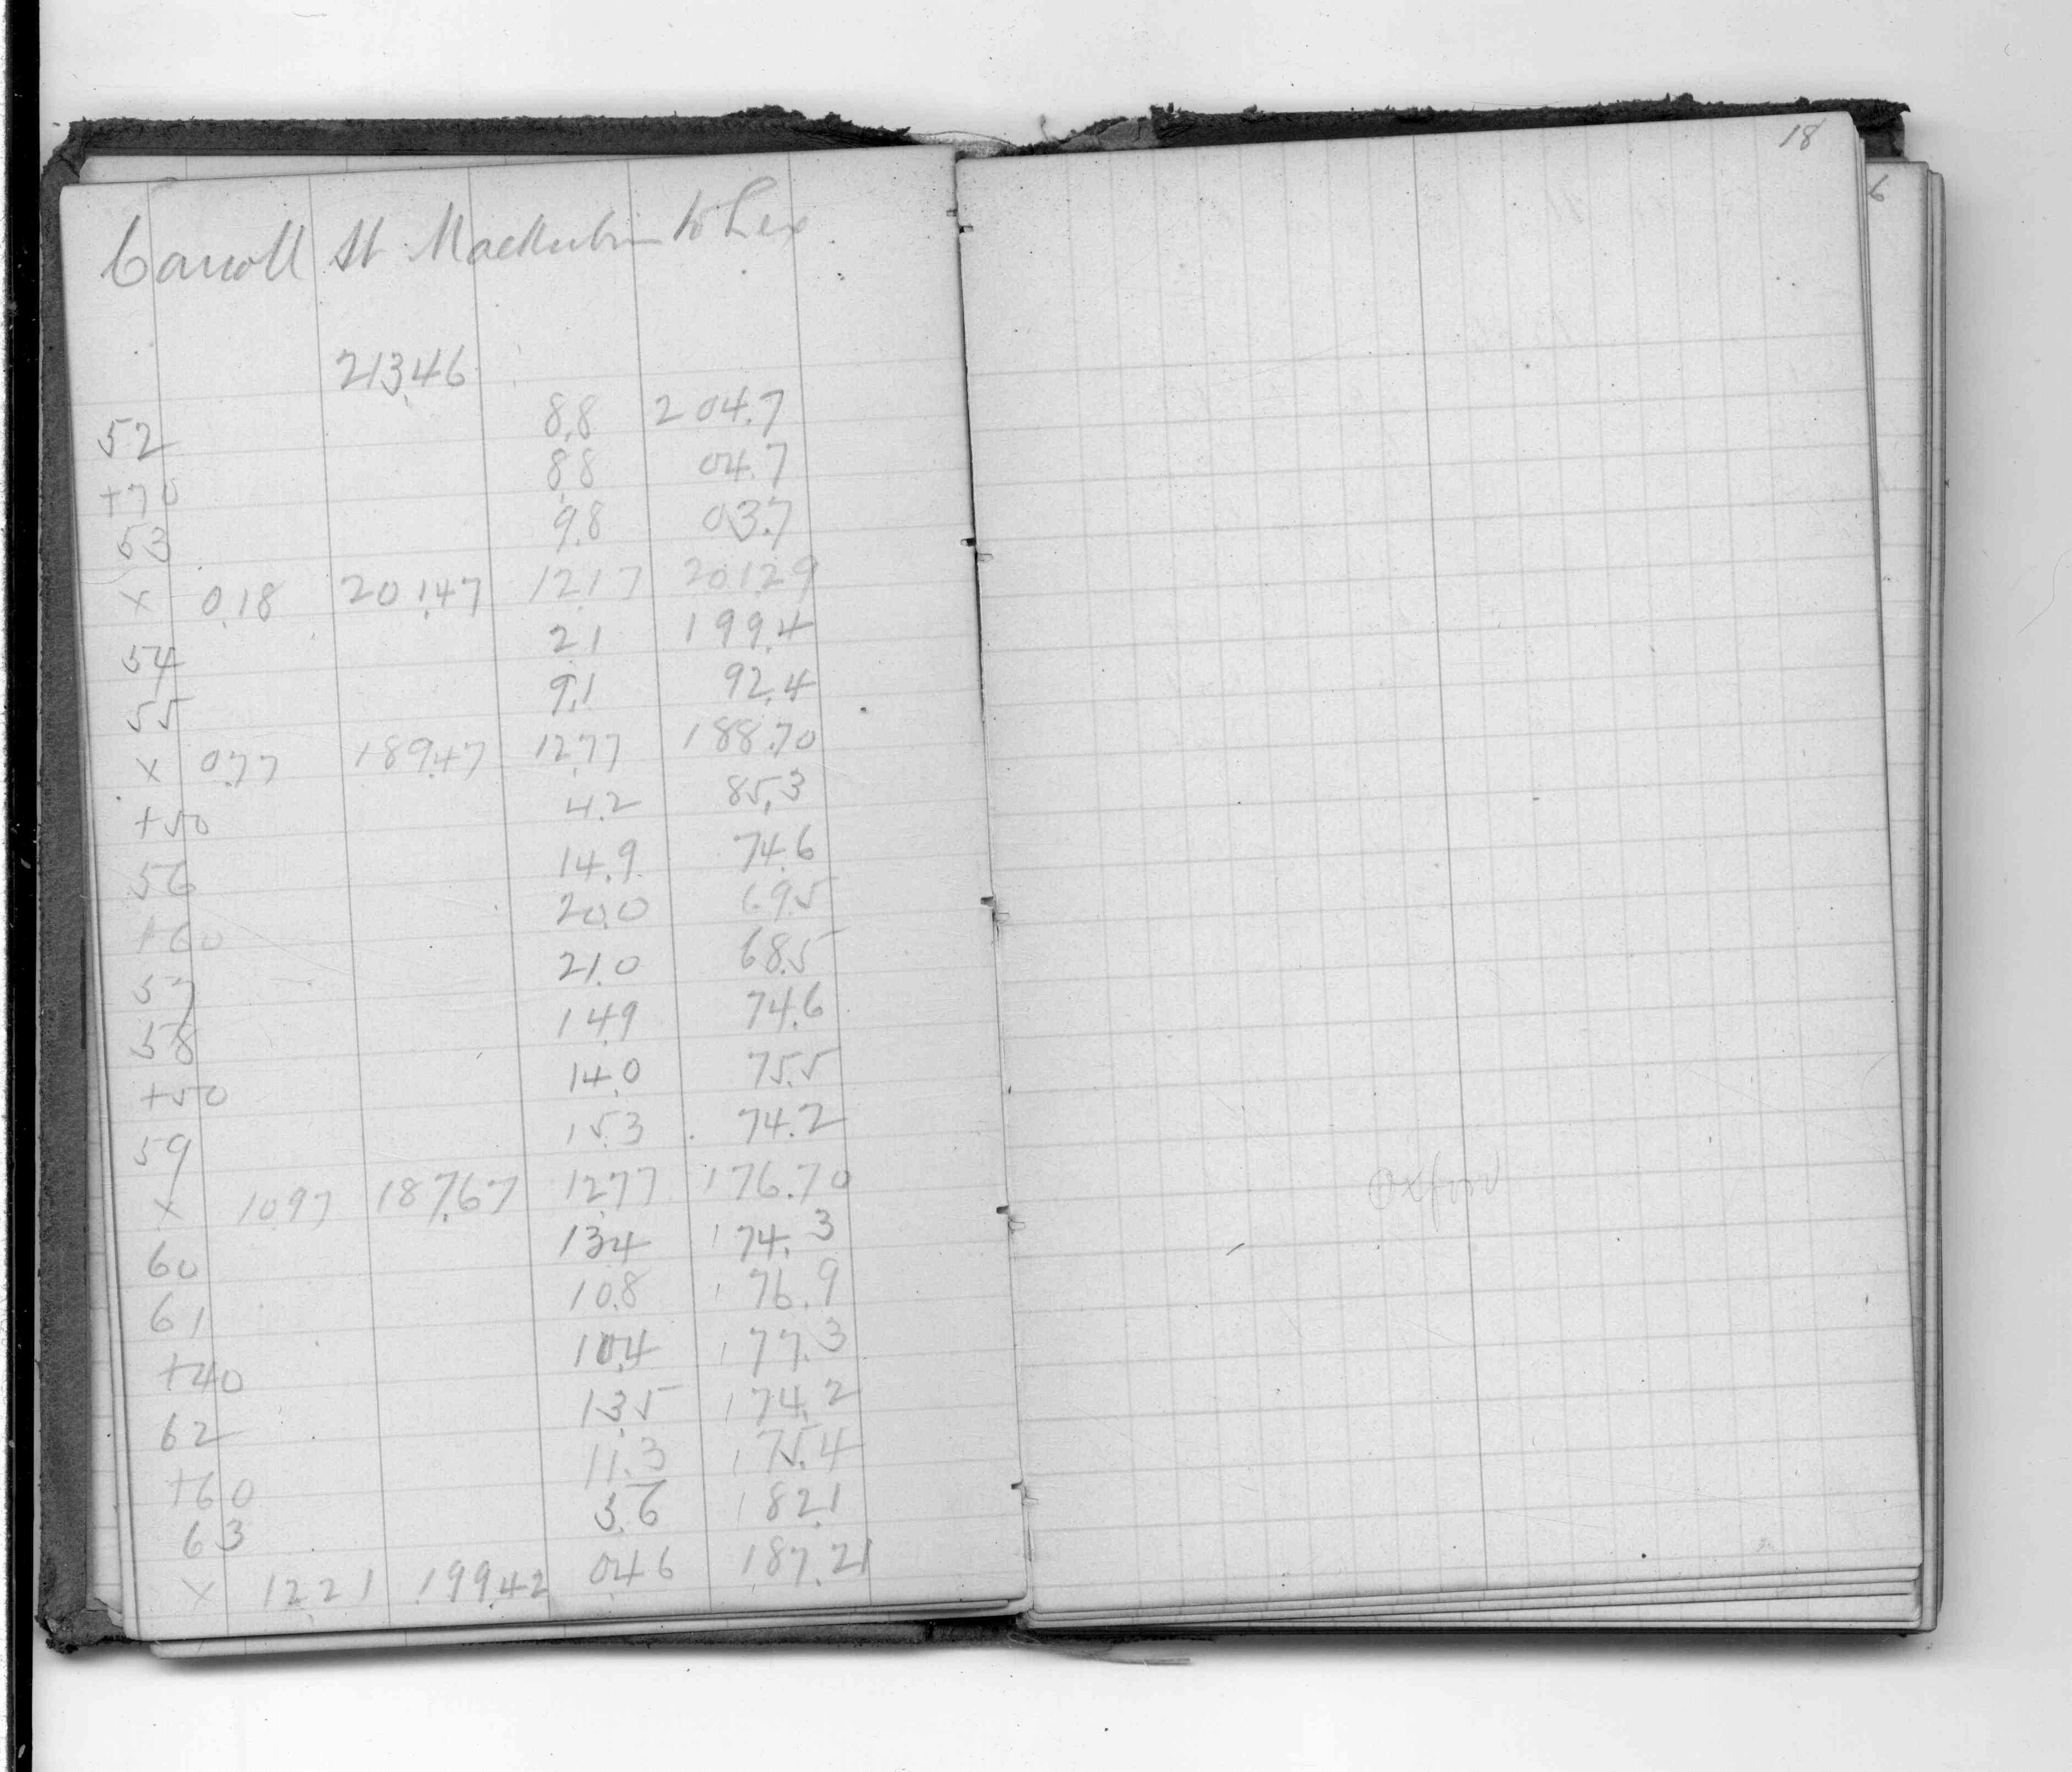 Carroll St Mackubin to Lex
213.46
52 8.8 204.7
+70 8.8 04.7
53 9.8 03.7
x 0.18 201.47 12.17 201.29
54 2.1 199.4
55 9.1 92.4
x 0.77 189.47 12.77 188.70
+50 4.2 85.3
56 14.9 74.6
+60 20.0 69.5
57 21.0 68.5
58 14.9 74.6
+50 14.0 75.5
59 15.3 74.2
x 10.97 187.67 12.77 176.70
60 13.4 174.3
61 10.8 176.9
+40 10.4 177.3
62 13.5 174.2
+60 11.3 175.4
63 5.6 182.1
x 12.21 199.42 0.46 187.21
18
6
Oxford